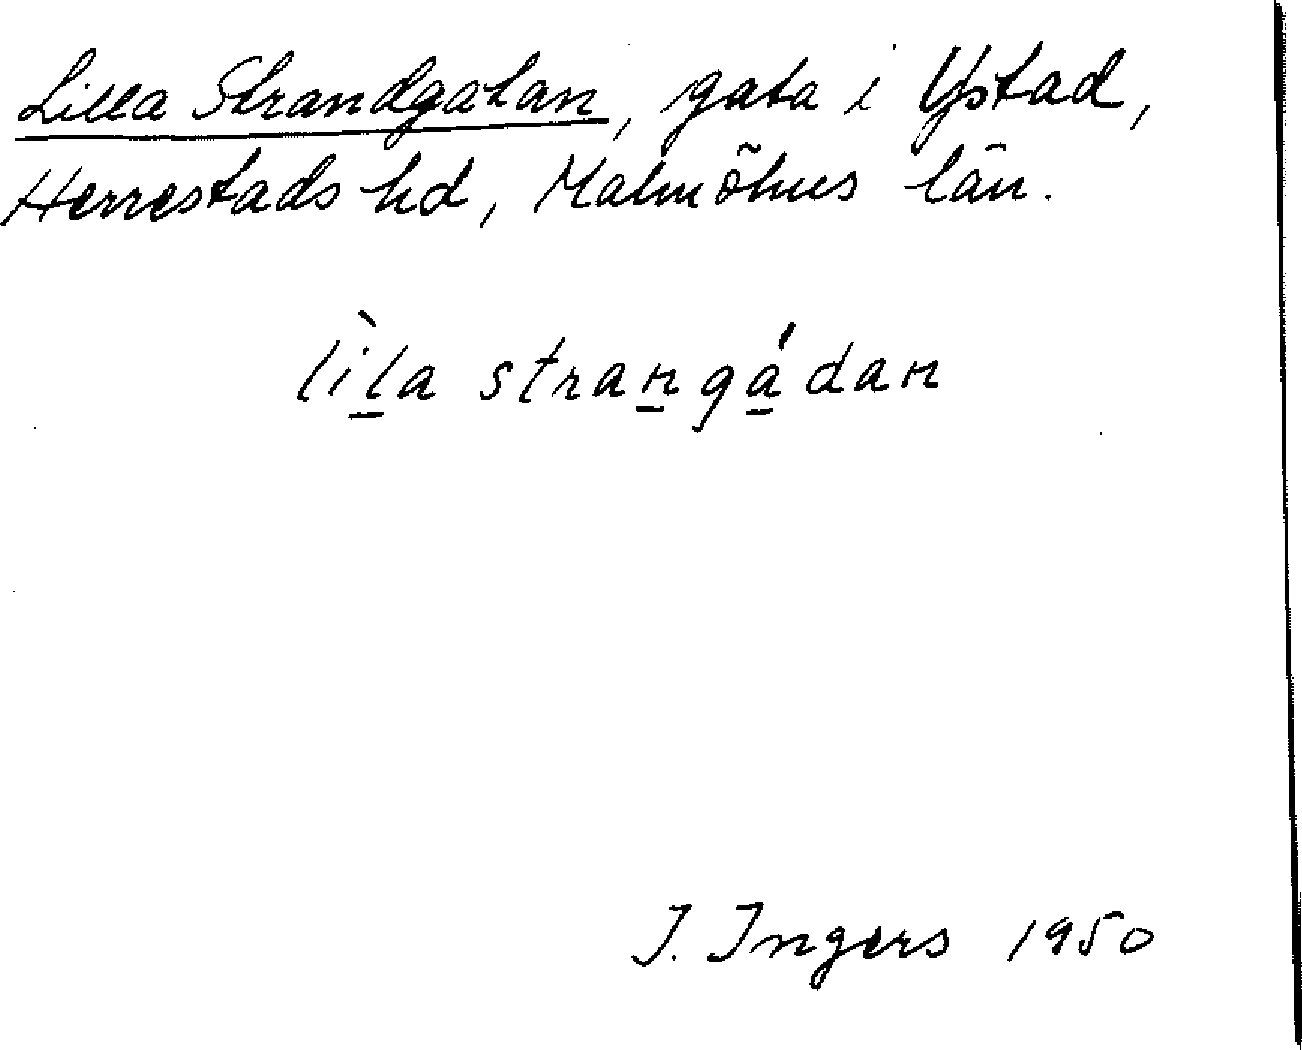 Lilla Strandgatan, gata i Ystad,
Herrestads hd, Malmöhus län.
lìl̲a stran̲gá̲dan
I. Ingers 1950